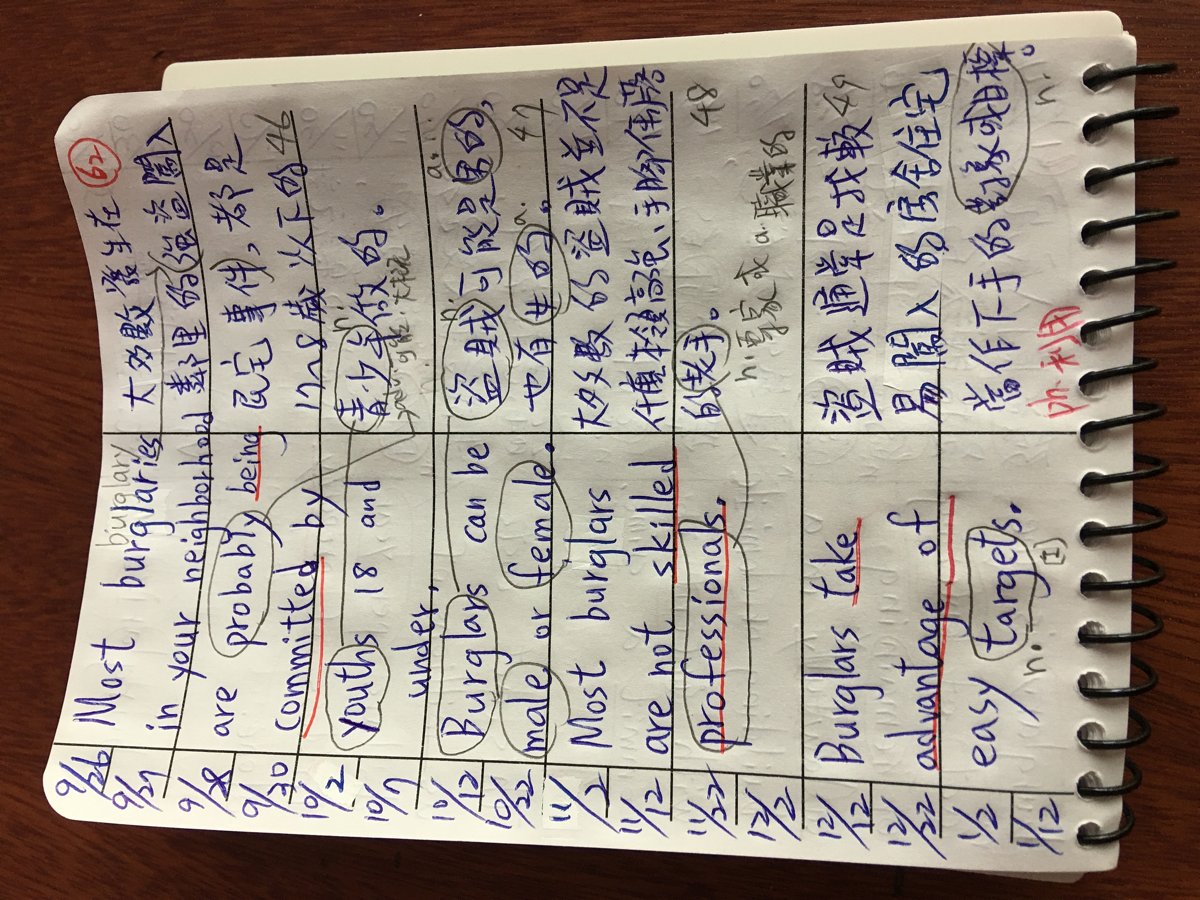 62
burglary
9/26 Most burglaries 大多數發生在
9/27 in your neighborhood 鄰里的強盜闖入
9/28 are probably being 民宅事件,都是
9/30 committed by 17~18歲以下的 46
10/2 youths 18 and 青少年做的。
adv. 可能、大概
10/7 under.
n. a.
10/12 Burglars can be 盜賊可能是男的,
10/22 male or female. 也有女的。 a. 47
11/2 Most burglars 大多數的盜賊並不是
11/12 are not skilled 什麼本領高強、手腳俐落
11/22 professionals. 的老手。 48
12/2 n.專家 或 a.職業的
12/12 Burglars take 盜賊通常是找較 49
12/22 advantage of 易闖入的房舍住宅
1/2 easy targets. 當作下手的對象或目標。
1/12 n. [I] ph.利用 n.